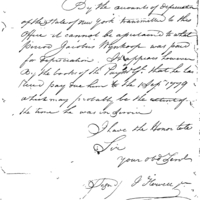 By the accounts of Depreciation
of the State of New York transmitted to this
Office it cannot be ascertained to what
period Jacobus Wynkoop was paid
for Depreciation. It appears however
By the books of the Pay Mr Genl that he has
been paid up to the
which may probably be the
the time he was in Service
I have the Honor to be
Sir
your obt Servt
Signd J Howell